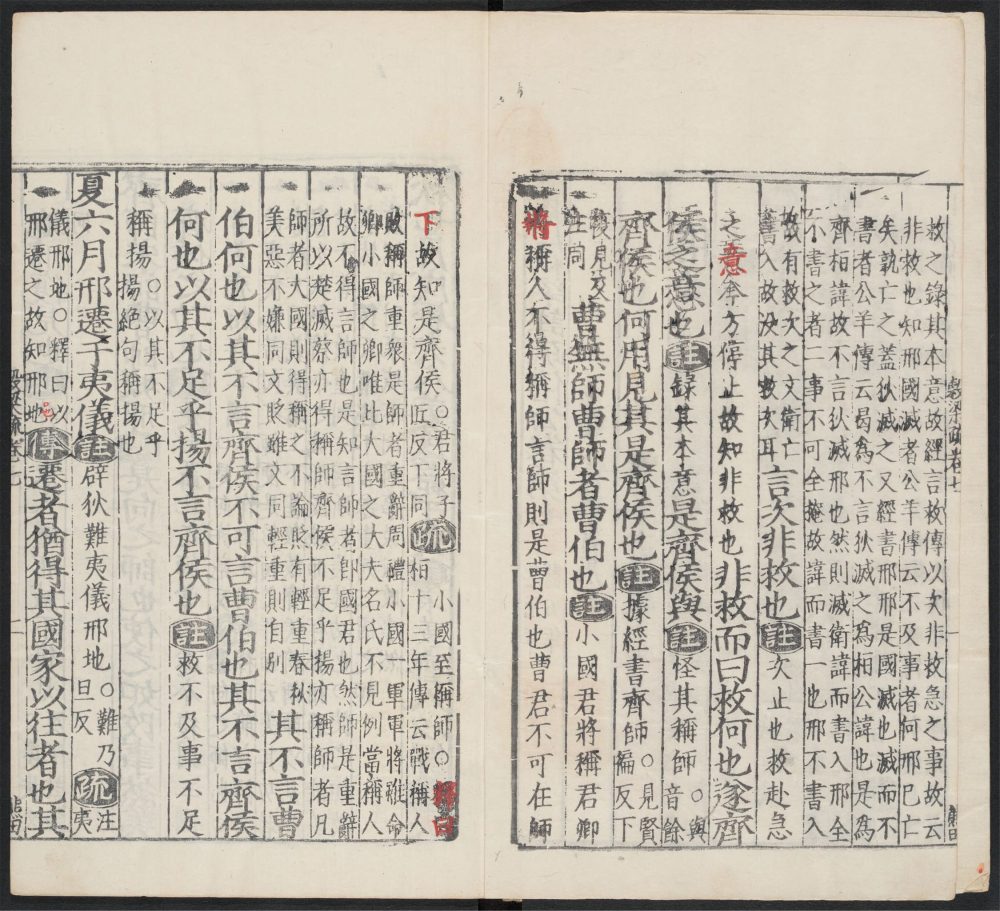 救之錄其本意故經言救傳以次非救急之事故云
非救也知邢國滅者公羊傳云不及事者何邢巳亡
矣孰亡之蓋狄滅之又經書邢邢是國滅也滅而不
書者公羊傳云曷爲不言狄滅之爲桓公諱也是爲
齊相諱故不言狄滅邢也然則滅衛諱而書入邢全
不書之者二事不可全掩故諱而書一也邢不書入
故有救次之文衛亡
書入故没其救次耳
言次非救也註次止也救赴急
之意今方停止故知非救也非救而曰救何也遂齊
侯之意也註錄其本意是齊侯與註怪其稱師○與音餘
齊侯也何用見其是齊侯也註據經書齊師○見賢徧反下
後見及注同曹無師曹師者曹伯也註小國君將稱君卿
將稱人不得稱師言師則是曹伯也曹君不可在師
下故知是齊侯○君將子匠反下同疏小國至稱師○釋曰
桓十三年傳云戰稱人
敗稱師重衆是師者重辭周禮小國一軍軍將雖命
卿小國之卿唯比大國之大夫名氏不見例當稱人
故不得言師也是知言師者卽國君也然師是重辭
所以楚滅蔡亦得稱師齊侯不足乎揚亦稱師者凡
師者大國則得稱之不論敗有輕重春秋
美惡不嫌同文貶雖文同輕重則自別
其不言曹
伯何也以其不言齊侯不可言曹伯也其不言齊侯
何也以其不足乎揚不言齊侯也註救不及事不足
稱揚○以其不足乎揚絶句稱揚也
夏六月邢遷于夷儀註辟狄難夷儀邢地○難乃旦反疏注夷
儀邢地○釋曰以
邢遷之故知邢地
傳遷者猶得其國家以往者也其